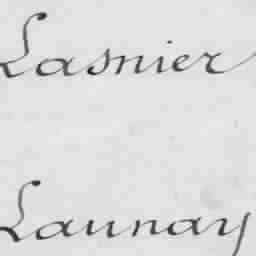 Lasnier
Launay